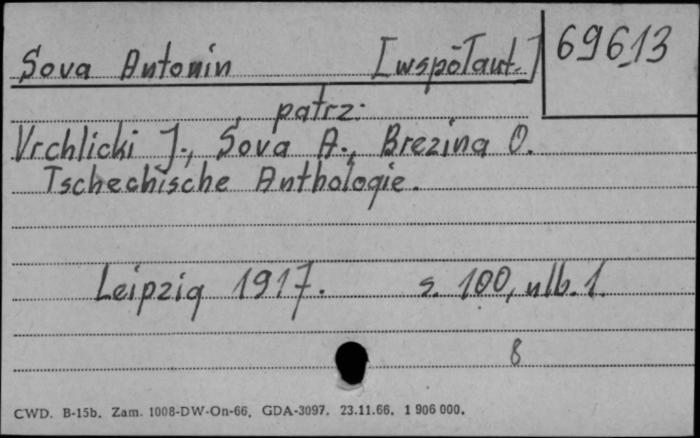 Sova Antonin [współaut.] 69613
patrz:
Vrchlicki J., Sova A., Brezina O.
Tschechische Anthologie.
Leipzig 1917. s. 100, nlb. 1.
8
CWD. B-15b. Zam. 1008-DW-On-66, GDA-3097. 23.11.66. 1 906 000.